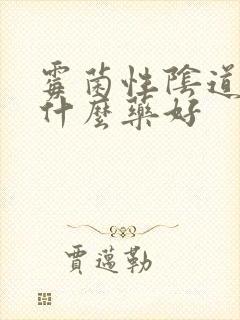 霉菌性陰道
什麼藥好
賈邁勒